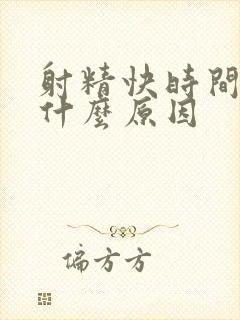 射精快時間
什麼原因
偏方方